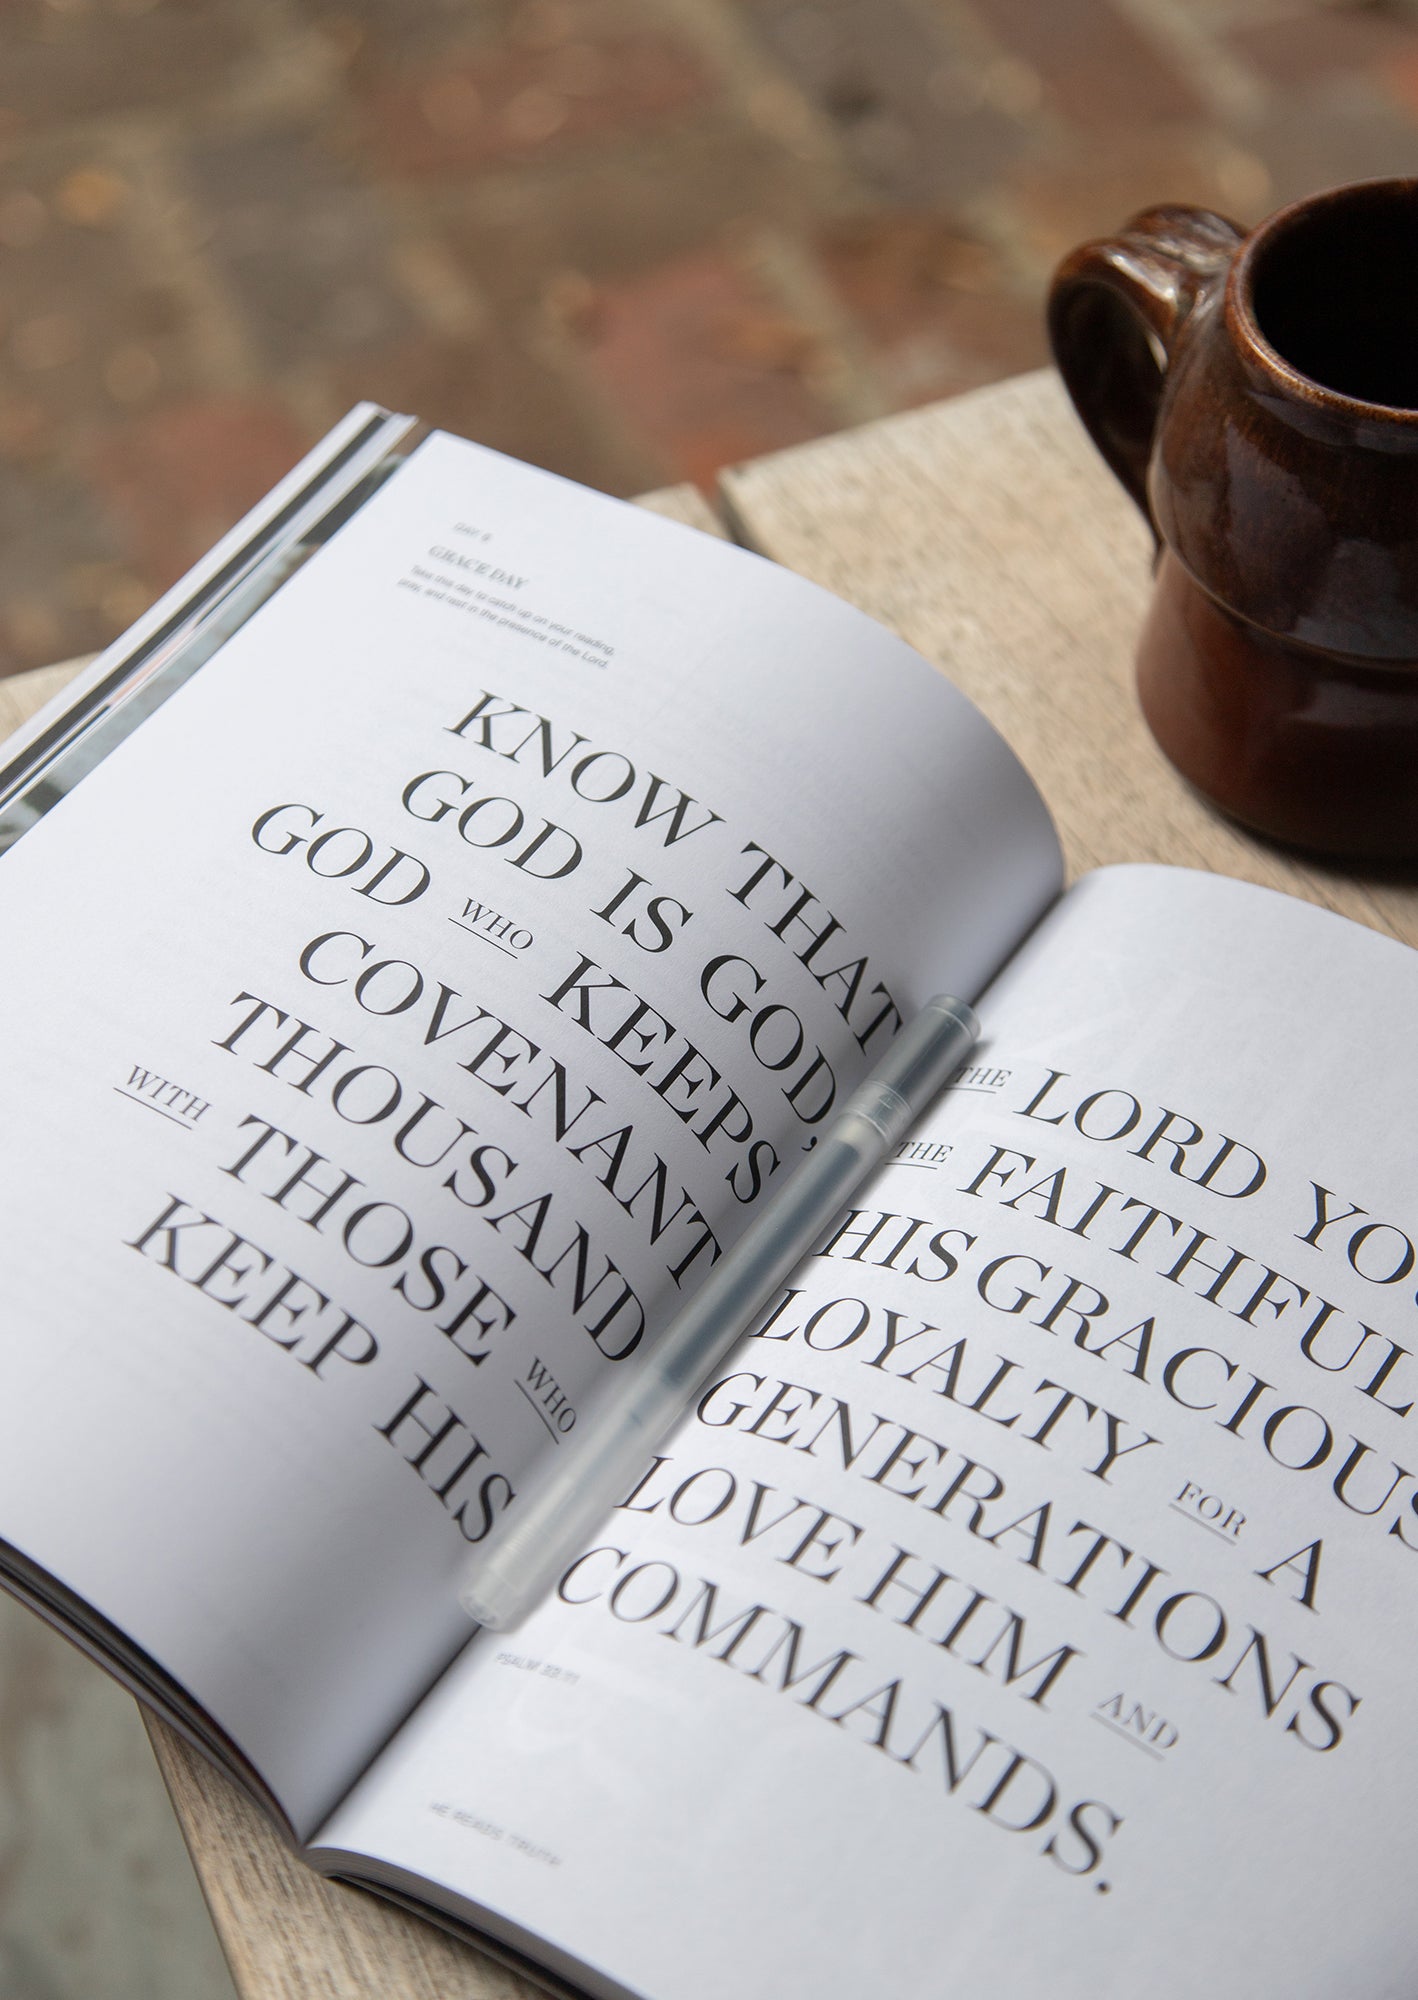 DAY 6
GRACE DAY
Take this day to catch up on your reading,
pray, and rest in the presence of the Lord.
KNOW THAT
GOD IS GOD,
GOD WHO KEEPS
COVENANT
THOUSAND
WITH THOSE WHO
KEEP HIS
THE LORD YO
THE FAITHFUL
HIS GRACIOUS
LOYALTY FOR A
GENERATIONS
LOVE HIM AND
COMMANDS.
HE READS TRUTH